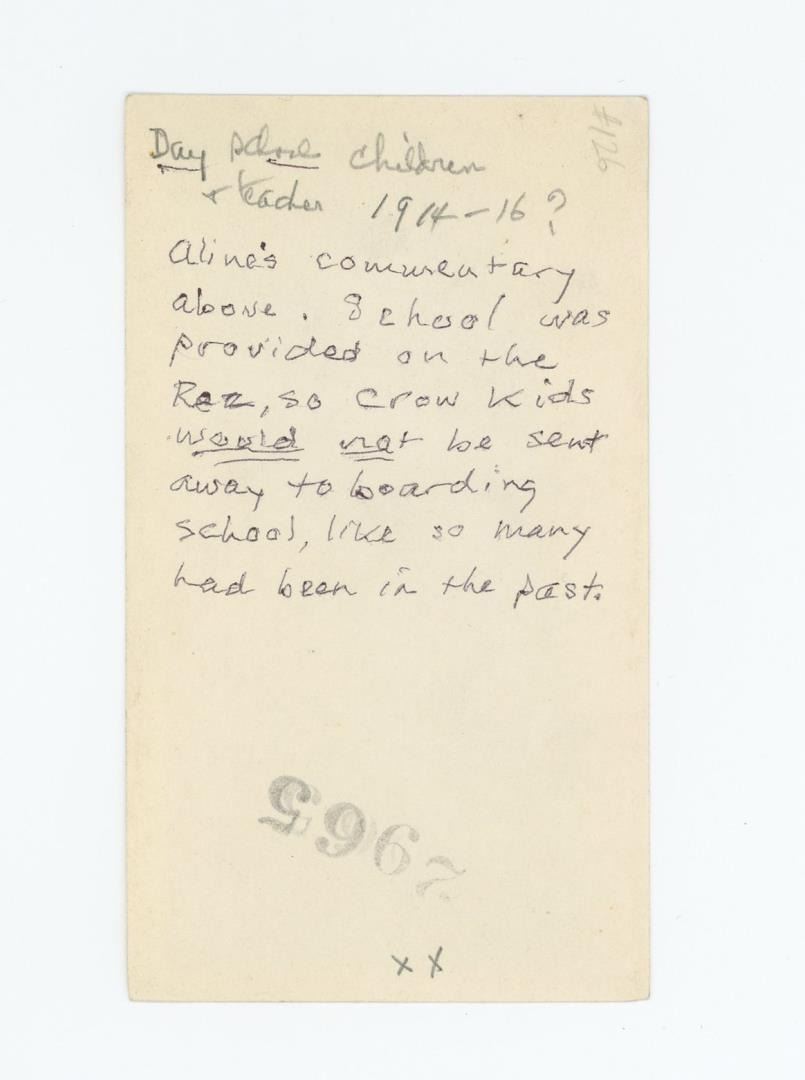 #126
Day school children
+ teacher 1914-16?
Aline's commentary
above. School was
provided on the
Rez, so Crow Kids
would not be sent
away to boarding
school, like so many
had been in the past.
2965
x x